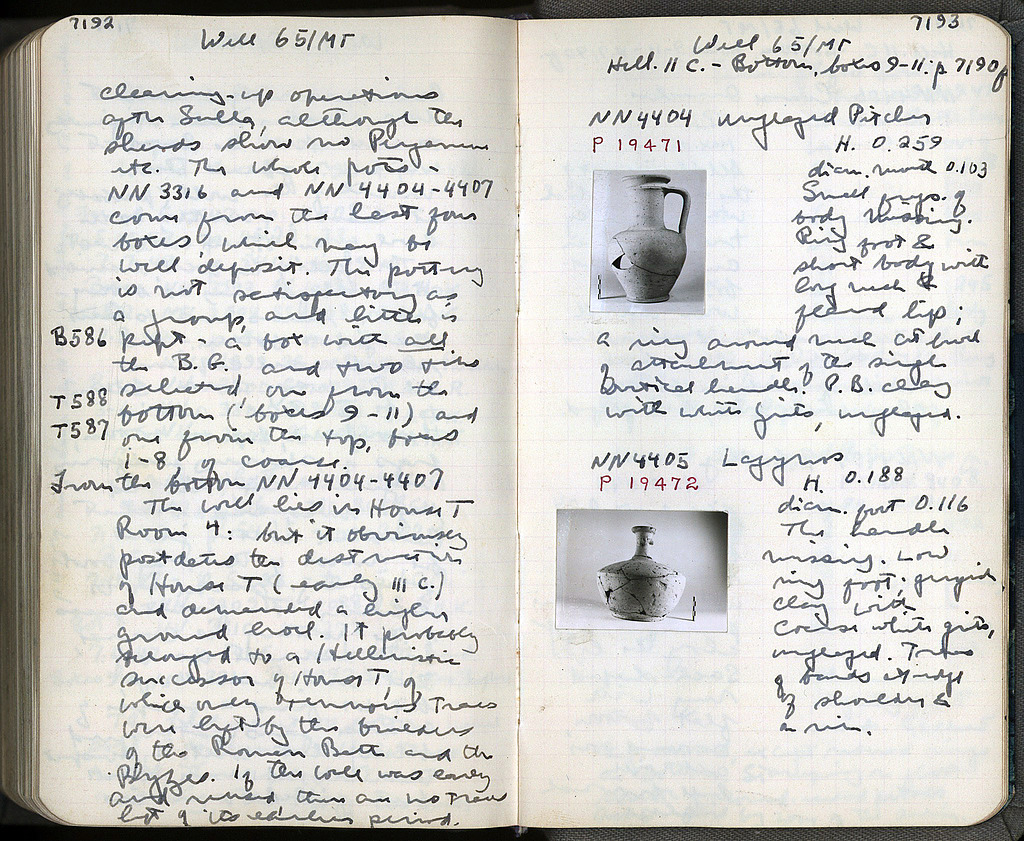 7192
Well 65/ΜΤ
cleaning-up operations
after Sulla, although the
sherds show no Pergamene
etc. The whole pots -
NN 3316 and NN 4404-4407
come from the last four
boxes which may be
well deposit. The pottery
is not satisfactory as
a group, and little is
B586 kept - a box with all
the B.G. and two tins
selected one from the
T588 bottom (boxes 9-11) and
T587 one from the top, boxes
1-8, of coarse.
From the bottom NN 4404-4407
The well lies in House T
Room 4: but it obviously
postdates the destruction
of House T (early III c.)
and demanded a higher
ground level. It probably
belonged to a Hellenistic
successor of House T, of
which only tenuous traces
were left by the builders
of the Roman Bath and the
Byzges. If the well was early
and reused there are no traces
left of its earlier period.
7193
Well 65/ΜΤ
Hell. II C. - Bottom, boxes 9-11: p 7190f
NN4404 unglazed Pitcher
P 19471
H. 0.259
diam. mouth 0.103
Small frags. of
body missing.
Ring foot &
short body with
long neck &
flared lip;
a ring around neck at level
of attachment of the single
vertical handle. P.B. clay
with white grits, unglazed.
NN4405 Lagynos
P 19472
H. 0.188
diam. foot 0.116
The handle
missing. Low
ring foot; greyish
clay with
coarse white grits,
unglazed. Traces
of bands at edge
of shoulder &
on rim.